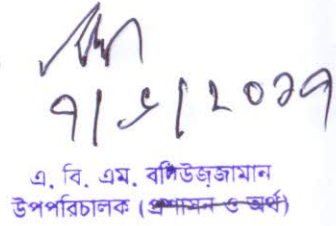 ৭/৮/২০১৭
এ. বি. এম. বদিউজ্জামান
উপপরিচালক (প্রশাসন ও অর্থ)